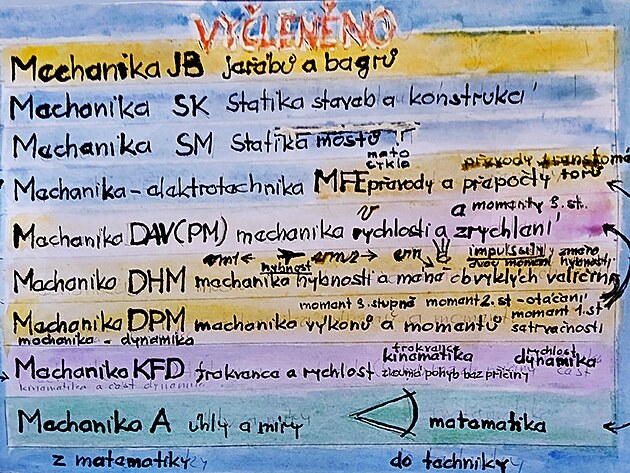 VYČLENĚNO
Mechanika JB jeřábů a bagrů
Mechanika SK Statika staveb a konstrukcí
Mechanika SM Statika mostů
moto
cykle
převody transformá
torů
Mechanika - elektrotechnika MFE převody a přepočty
a momenty 3. st.
Mechanika DAV(PM) mechanika rychlosti a zrychlení
impuls síly změna
dvou momentů hybnosti
hybnost
Mechanika DHM mechanika hybnosti a méně obvyklých veličin
moment 3. stupně moment 2. st - otáčení
moment 1. st
Mechanika DPM mechanika výkonů a momentů setrvačnosti
mechanika - dynamika
frekvence rychlost
kinematika dynamika
Mechanika KFD frekvence a rychlost zkoumá pohyb bez příčiny část
kinematika a část dynamika
Mechanika A úhly a míry matematika
z matematiky do techniky